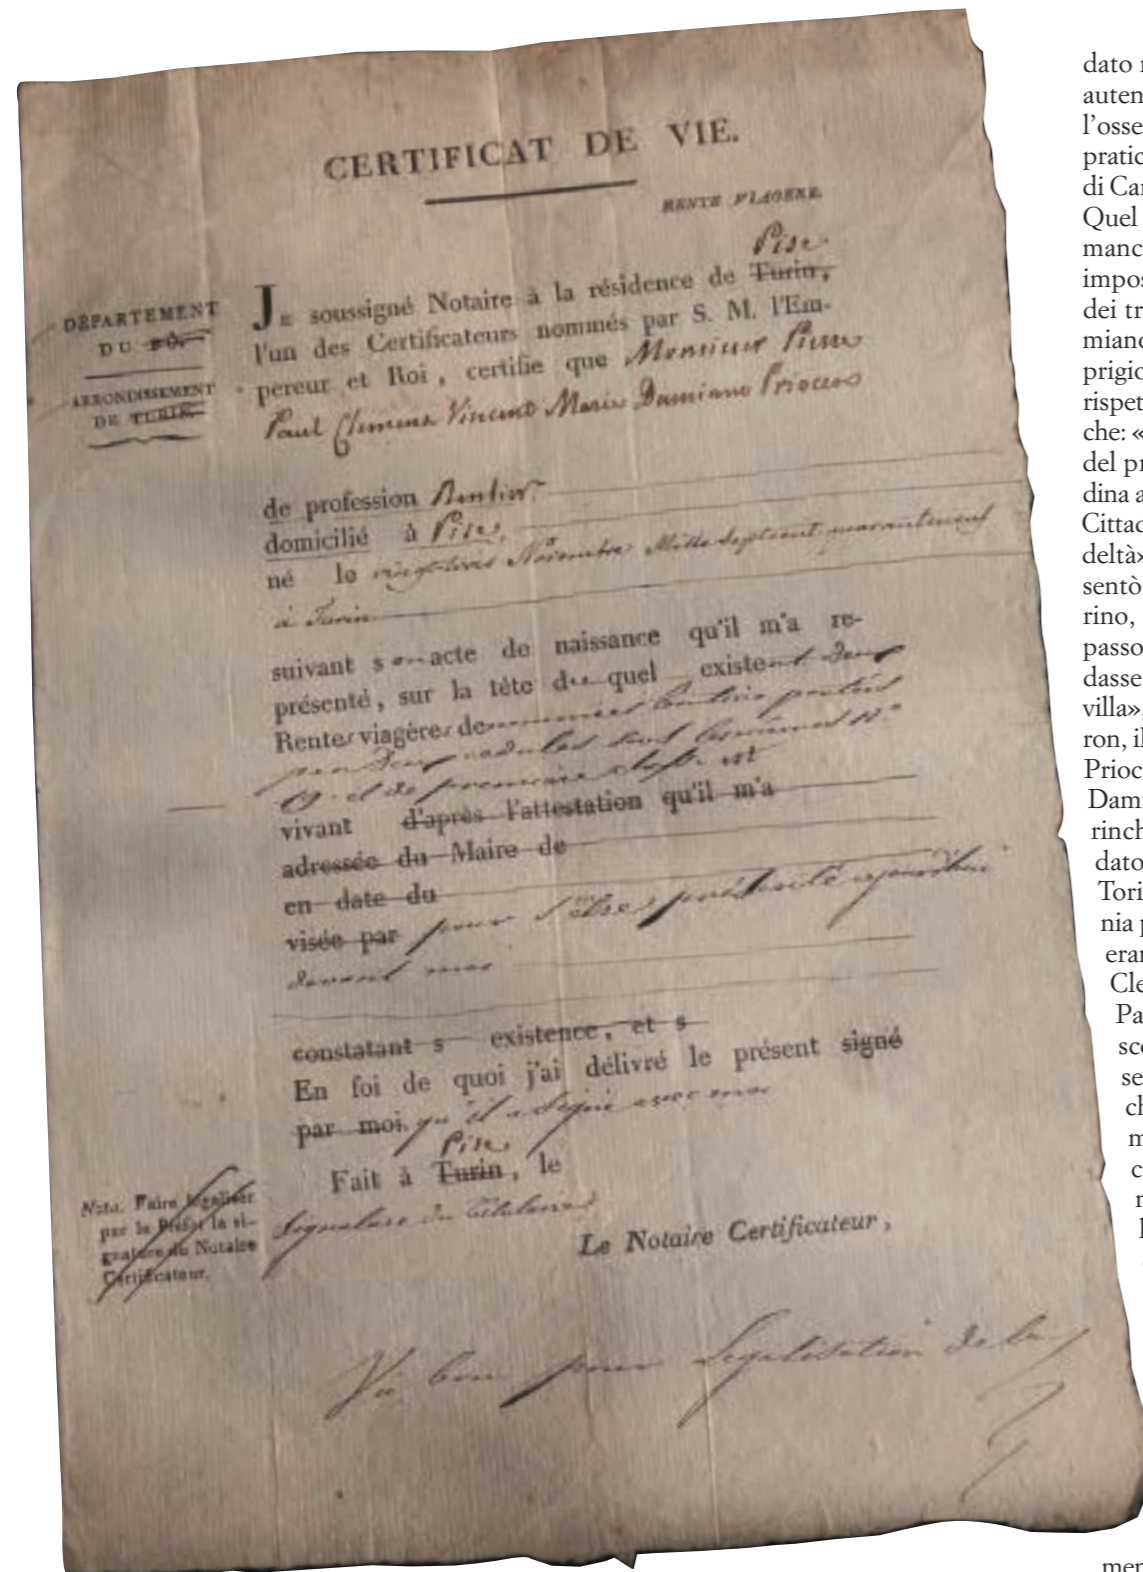 CERTIFICAT DE VIE.
RENTE VIAGERE.
DÉPARTEMENT
DU PÔ.
ARRONDISSEMENT
DE TURIN.
Pise
JE soussigné Notaire à la résidence de Turin,
l'un des Certificateurs nommés par S. M. l'Em-
pereur et Roi, certifie que Monsieur Pierre
Paul Clément Vincent Marie Damiano Priocca
de profession Rentier.
domicilié à Pise,
né le vingt-trois Novembre Mille Septcent quaranteneuf
à Turin
suivant son acte de naissance qu'il m'a re-
présenté, sur la tête du quel existent deux
Rentes viagères de
19. et de première est
vivant d'après l'attestation qu'il m'a
adressée du Maire de
en date du
visée par pour s'être présenté aujourd'hui
devant moi
constatant s existence, et s
En foi de quoi j'ai délivré le présent signé
par moi. qu'il a signé avec moi
Pise
Fait à Turin, le
Signature du titulaire
Nota. Faire légaliser
par le Préfet la si-
gnature du Notaire
Certificateur.
Le Notaire Certificateur,
Vu bon pour Legalisation de la
dato
auten
l'osse
pratic
di Car
Quel
manc
impos
dei tr
miano
prigio
rispet
che: «
del pr
dina a
Cittad
deltà»
sentò
rino,
passo
dasse
villa»,
ron, il
Prioc
Dami
rinch
dato
Tori
nia p
eran
Cle
Pa
sco
se
ch
m
c
men